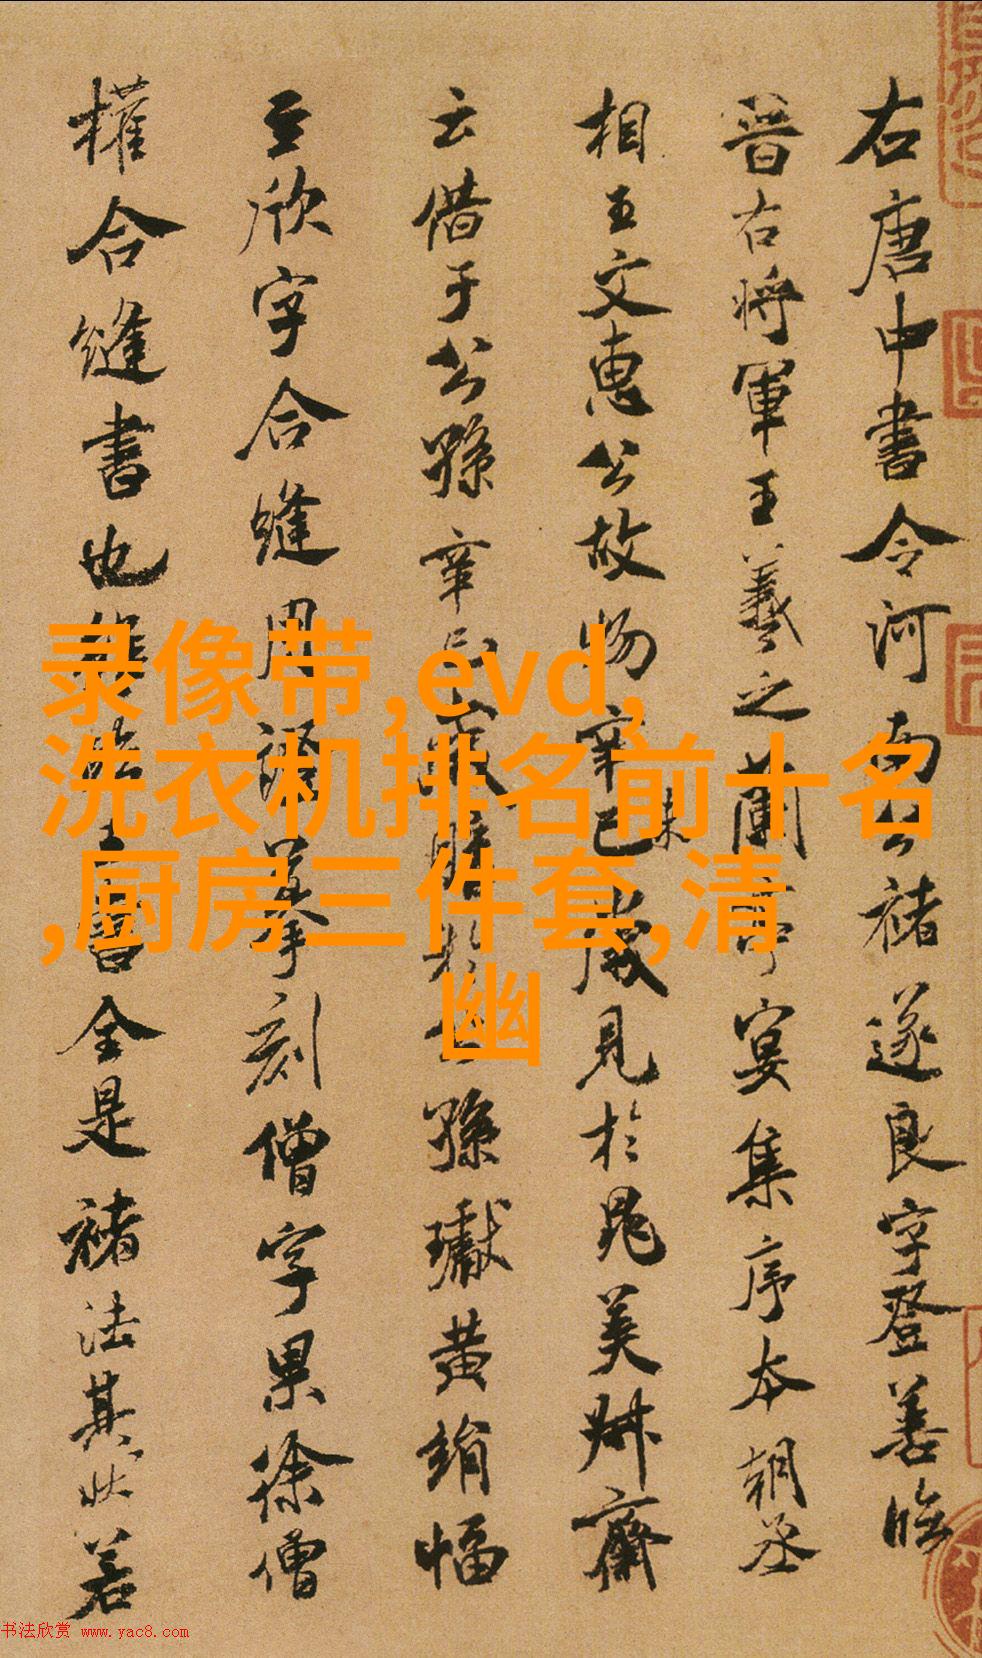 右唐中書令河南公褚遂良字登善臨
晉右將軍王羲之蘭亭宴集序本朝丞
相王文惠公故物辛未歲見於晁美叔齋
云借于公孫辛巳歲購於公孫瓛黃絹幅
至欣字合縫用證摹刻僧字果徐僧
權合縫書也雖臨王書全是褚法其狀若
录像带,evd,
洗衣机排名前十名
,厨房三件套,清
幽
书法欣赏 www.yac8.com